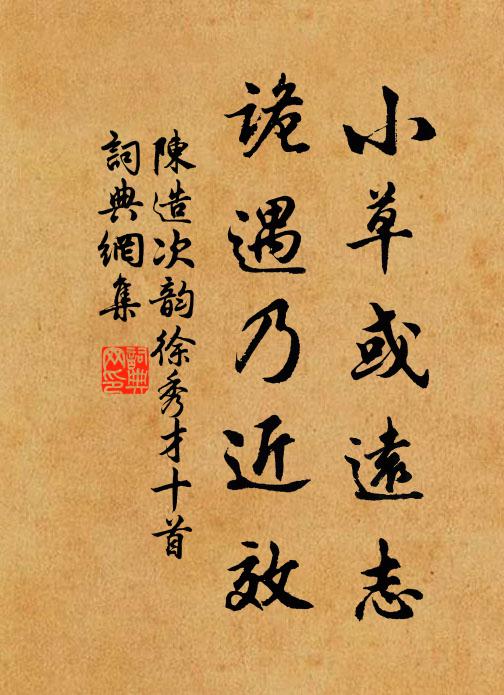 小草或遠志
詭遇乃近效
陳造次韵徐秀才十首
詞典網集
詞典网印